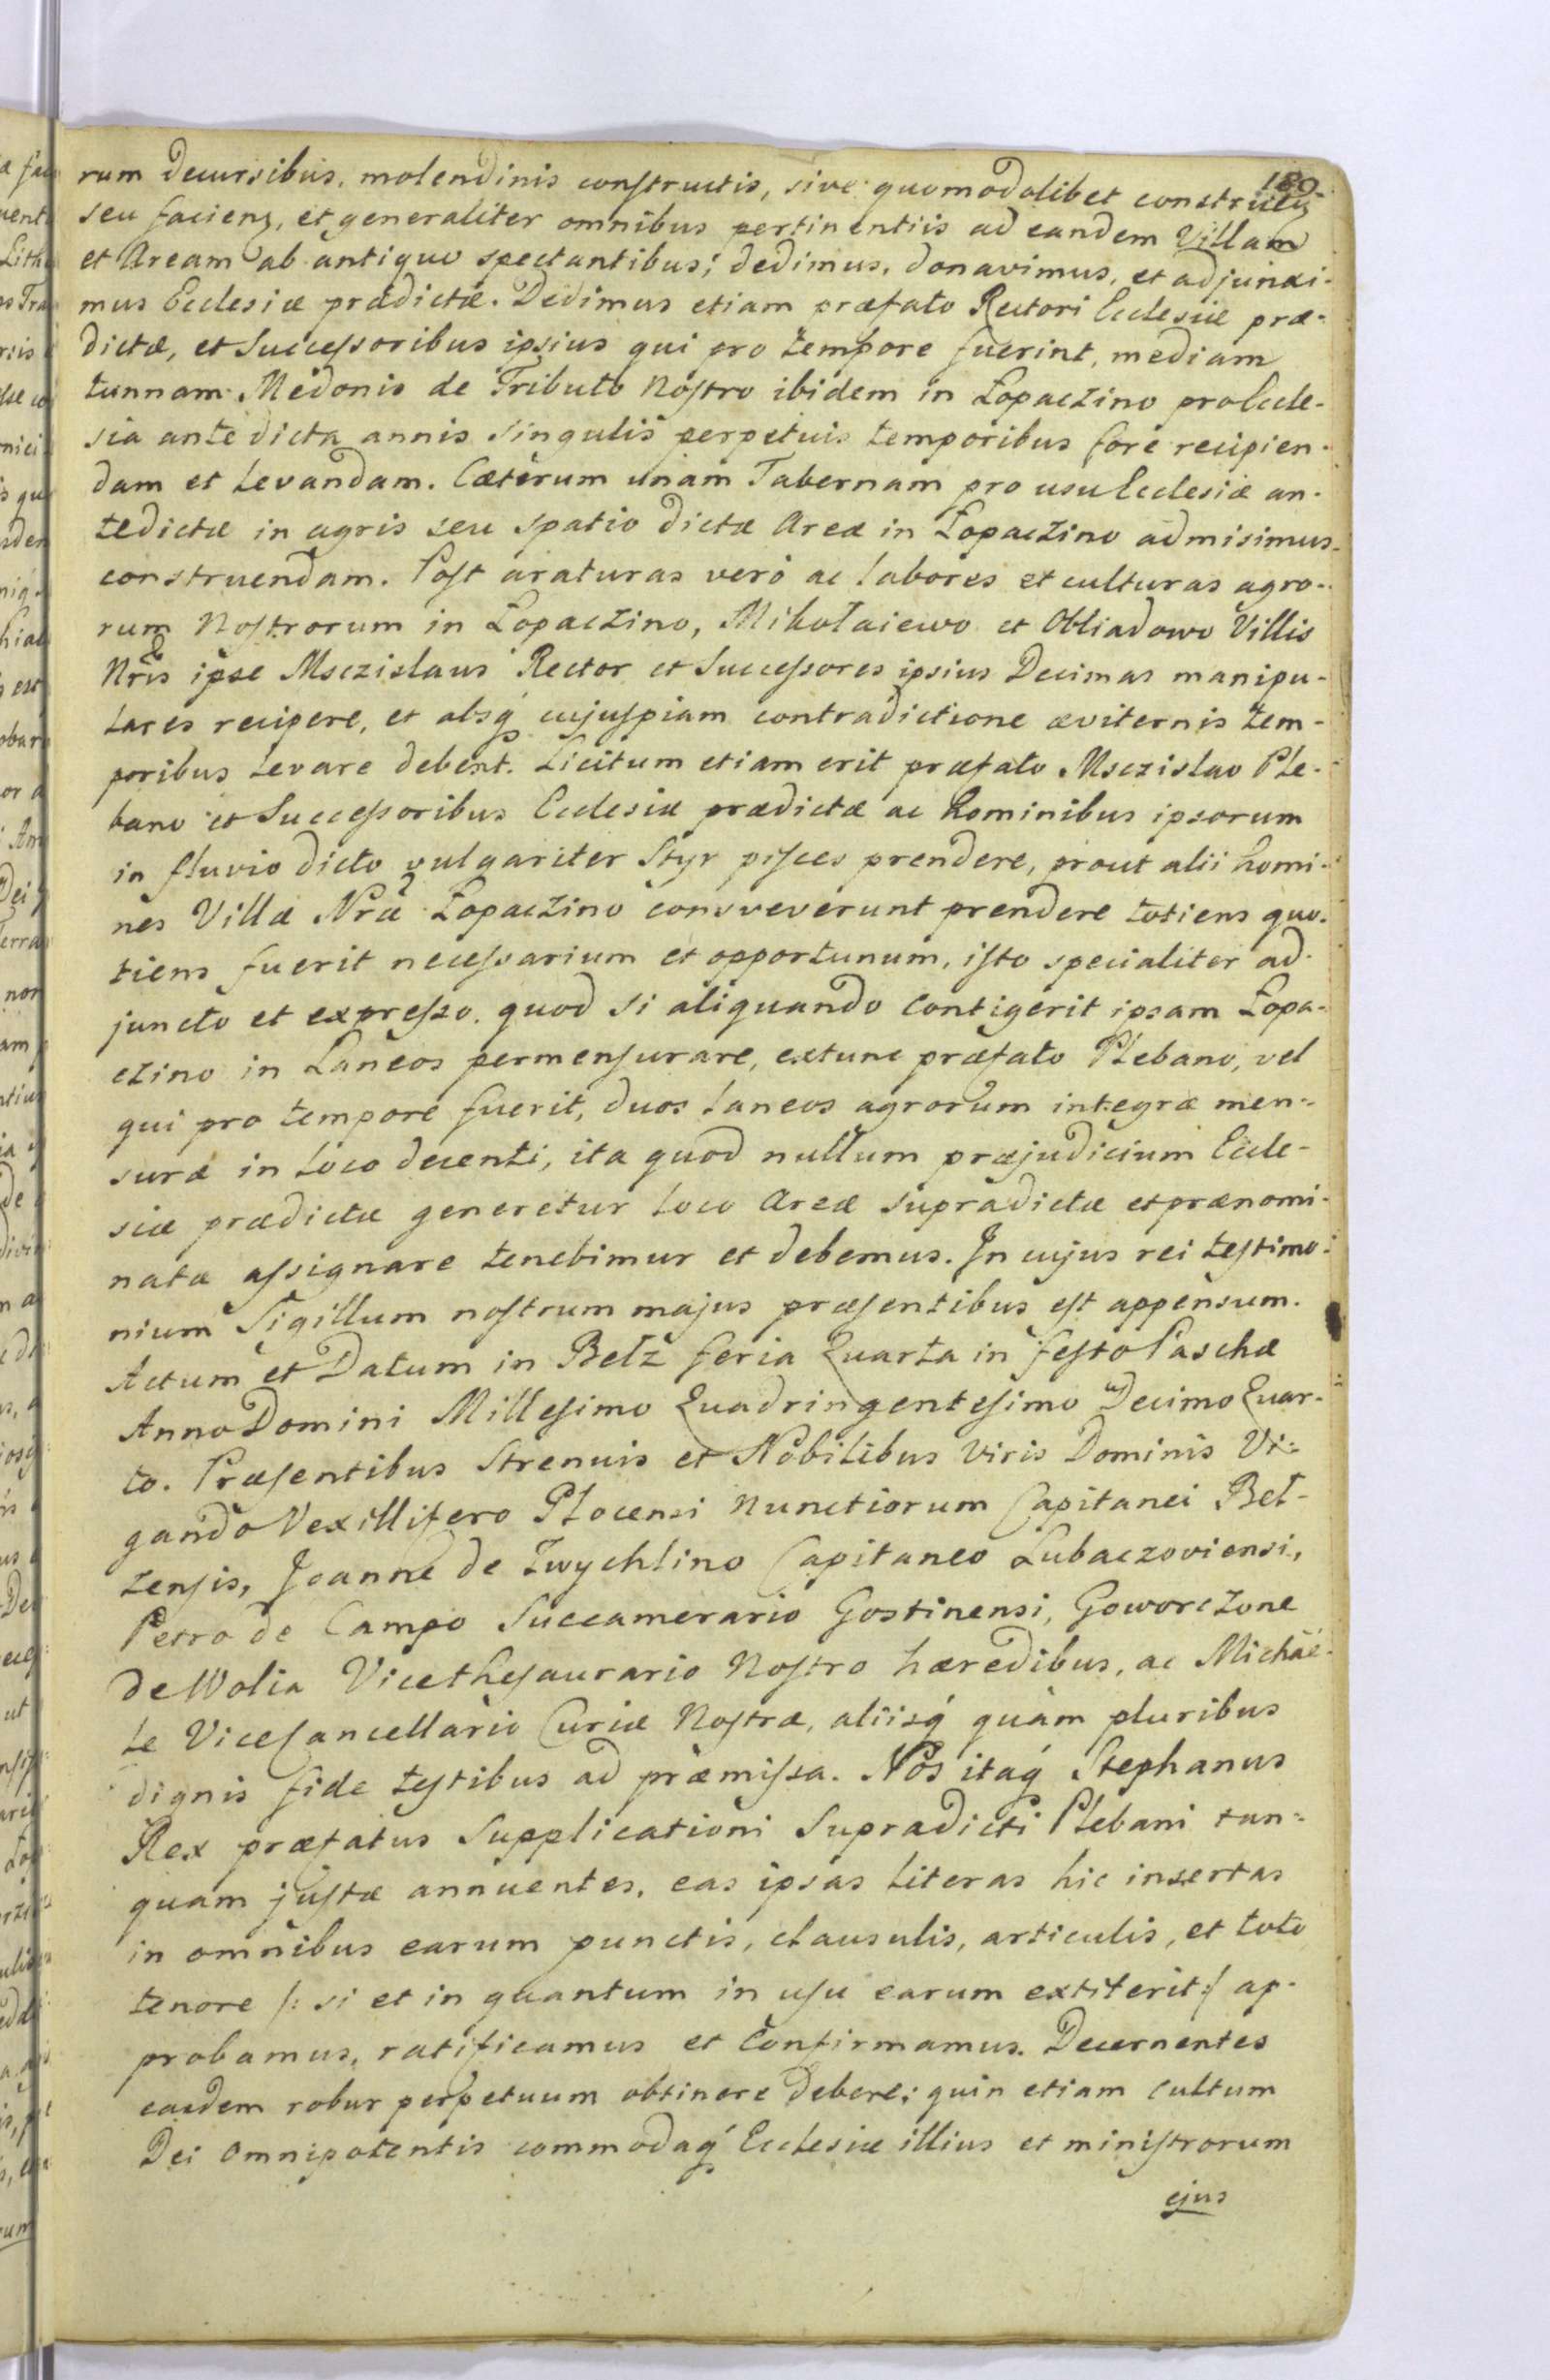 189.
rum decursibus, molendinis constructis, sive quomodolibet construen
seu faciens, et generaliter omnibus pertinentiis ad eandem Villam
et Aream ab antiquo spectantibus; dedimus, donavimus, et adjunxi-
mus Ecclesiæ prædictæ. Dedimus etiam præfato Rectori Ecclesiæ præ-
dictæ, et Successoribus ipsius qui pro tempore fuerint, mediam
tunnam Medonis de Tributo Nostro ibidem in Łopaczino pro Eccle-
sia antedicta annis singulis perpetuis temporibus fore recipien-
dam et levandam. Cæterum unam Tabernam pro usu Ecclesiæ an-
tedictæ in agris seu spatio dictæ Areæ in Łopaczino admisimus
construendam. Post araturas verò ac labores et culturas agro-
rum Nostrorum in Łopaczino, Mikołaiewo et Obliadowo Villis
Nris ipse Msczislaus Rector et Successores ipsius Decimas manipu-
lares recipere, et absq́ cujuspiam contradictione æviternis tem-
poribus levare debent. Licitum etiam erit præfato Msczislao Ple-
bano et Successoribus Ecclesiæ prædictæ ac hominibus ipsorum
in fluvio dicto vulgariter Styr pisces prendere, prout alii homi-
nes Villæ Nræ Łopaczino consveverunt prendere totiens quo-
tiens fuerit necessarium et opportunum, isto specialiter ad-
juncto et expresso, quod si aliquando contigerit ipsam Łopa-
czino in Laneos permensurare, extunc præfato Plebano, vel
qui pro tempore fuerit, duos laneos agrorum integræ men-
suræ in loco decenti, ita quod nullum præjudicium Eccle-
siæ prædictæ generetur loco Areæ supradictæ et prænomi-
natæ assignare tenebimur et debemus. In cujus rei testimo-
nium Sigillum nostrum majus præsentibus est appensum.
Actum et Datum in Bełz feria Quarta in festo Paschæ
Anno Domini Millesimo Quadringentesimo Decimo Quar-
to. Præsentibus Strenuis et Nobilibus Viris Dominis Vi-
gando Vexillifero Plocensi nunctiorum Capitanei Beł-
zensis, Joanne de Zwychlino Capitaneo Lubaczoviensi,
Petro de Campo Succamerario Gostinensi, Goworczone
de Wolia Vicethesaurario Nostro hæredibus, ac Michäe-
le Vicecancellario Curiæ Nostræ, aliisq́ quàm pluribus
dignis fide testibus ad præmissa. Nos itaq́ Stephanus
Rex præfatus Supplicationi Supradicti Plebani tan-
quam justæ annuentes, eas ipsas literas hic insertas
in omnibus earum punctis, clausulis, articulis, et toto
tenore /: si et in quantum in usu earum extiterit :/ ap-
probamus, ratificamus et confirmamus. Decernentes
easdem robur perpetuum obtinere debere; quin etiam cultum
Dei Omnipotentis commodaq́ Ecclesiæ illius et ministrorum
ejus